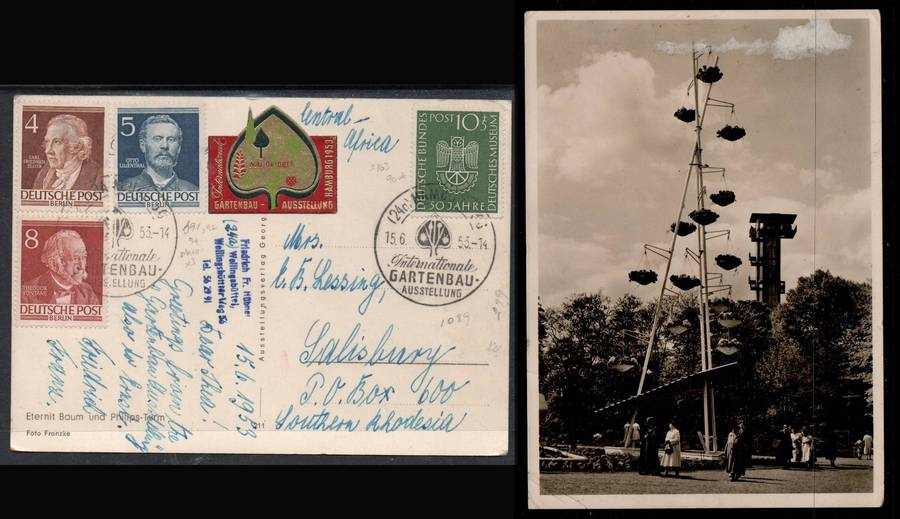 4
CARL
FRIEDRICH
ZELTER
DEUTSCHE POST
BERLIN
5
OTTO
LILIENTHAL
DEUTSCHE POST
BERLIN
8
THEODOR
FONTANE
DEUTSCHE POST
BERLIN
Internationale
GARTENBAU - AUSSTELLUNG
HAMBURG 1953
DEUTSCHE BUNDESPOST 10+5
50 JAHRE DEUTSCHES MUSEUM
Central-
Africa
53.-14
Internationale
GARTENBAU-
AUSSTELLUNG
(24a)
15.6. 53.-14
Internationale
GARTENBAU-
AUSSTELLUNG
Mrs.
Lessing,
Salisbury
P.O. Box 600
Southern Rhodesia
1089
Friedrich Fr. Hübner
(24a) Wellingsbüttel,
Wellingsbüttler Weg
Tel. 56 39 91
Ausstellungsverlag Georg
15.6.1953
Dear Thea!
Greetings from the
Gartenbauausstellung
also
Friedrich
Franz.
Eternit Baum und Philips-Turm
Foto Franzke